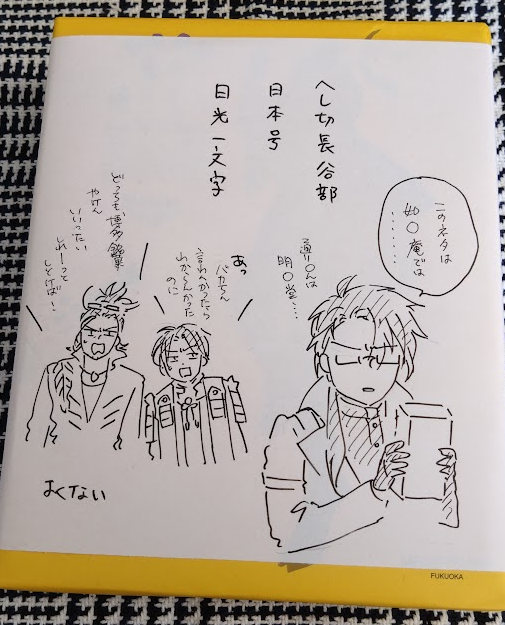 へし切長谷部
日本号
日光一文字
このネタは
如〇庵では
・・・・・・・
通りもんは
明〇堂…
あっ
バカちん
言わんかったら
わからんかった
のに
どっちも博多銘菓
やけん
いいったい
おれーって
しとけば…!
よくない
FUKUOKA